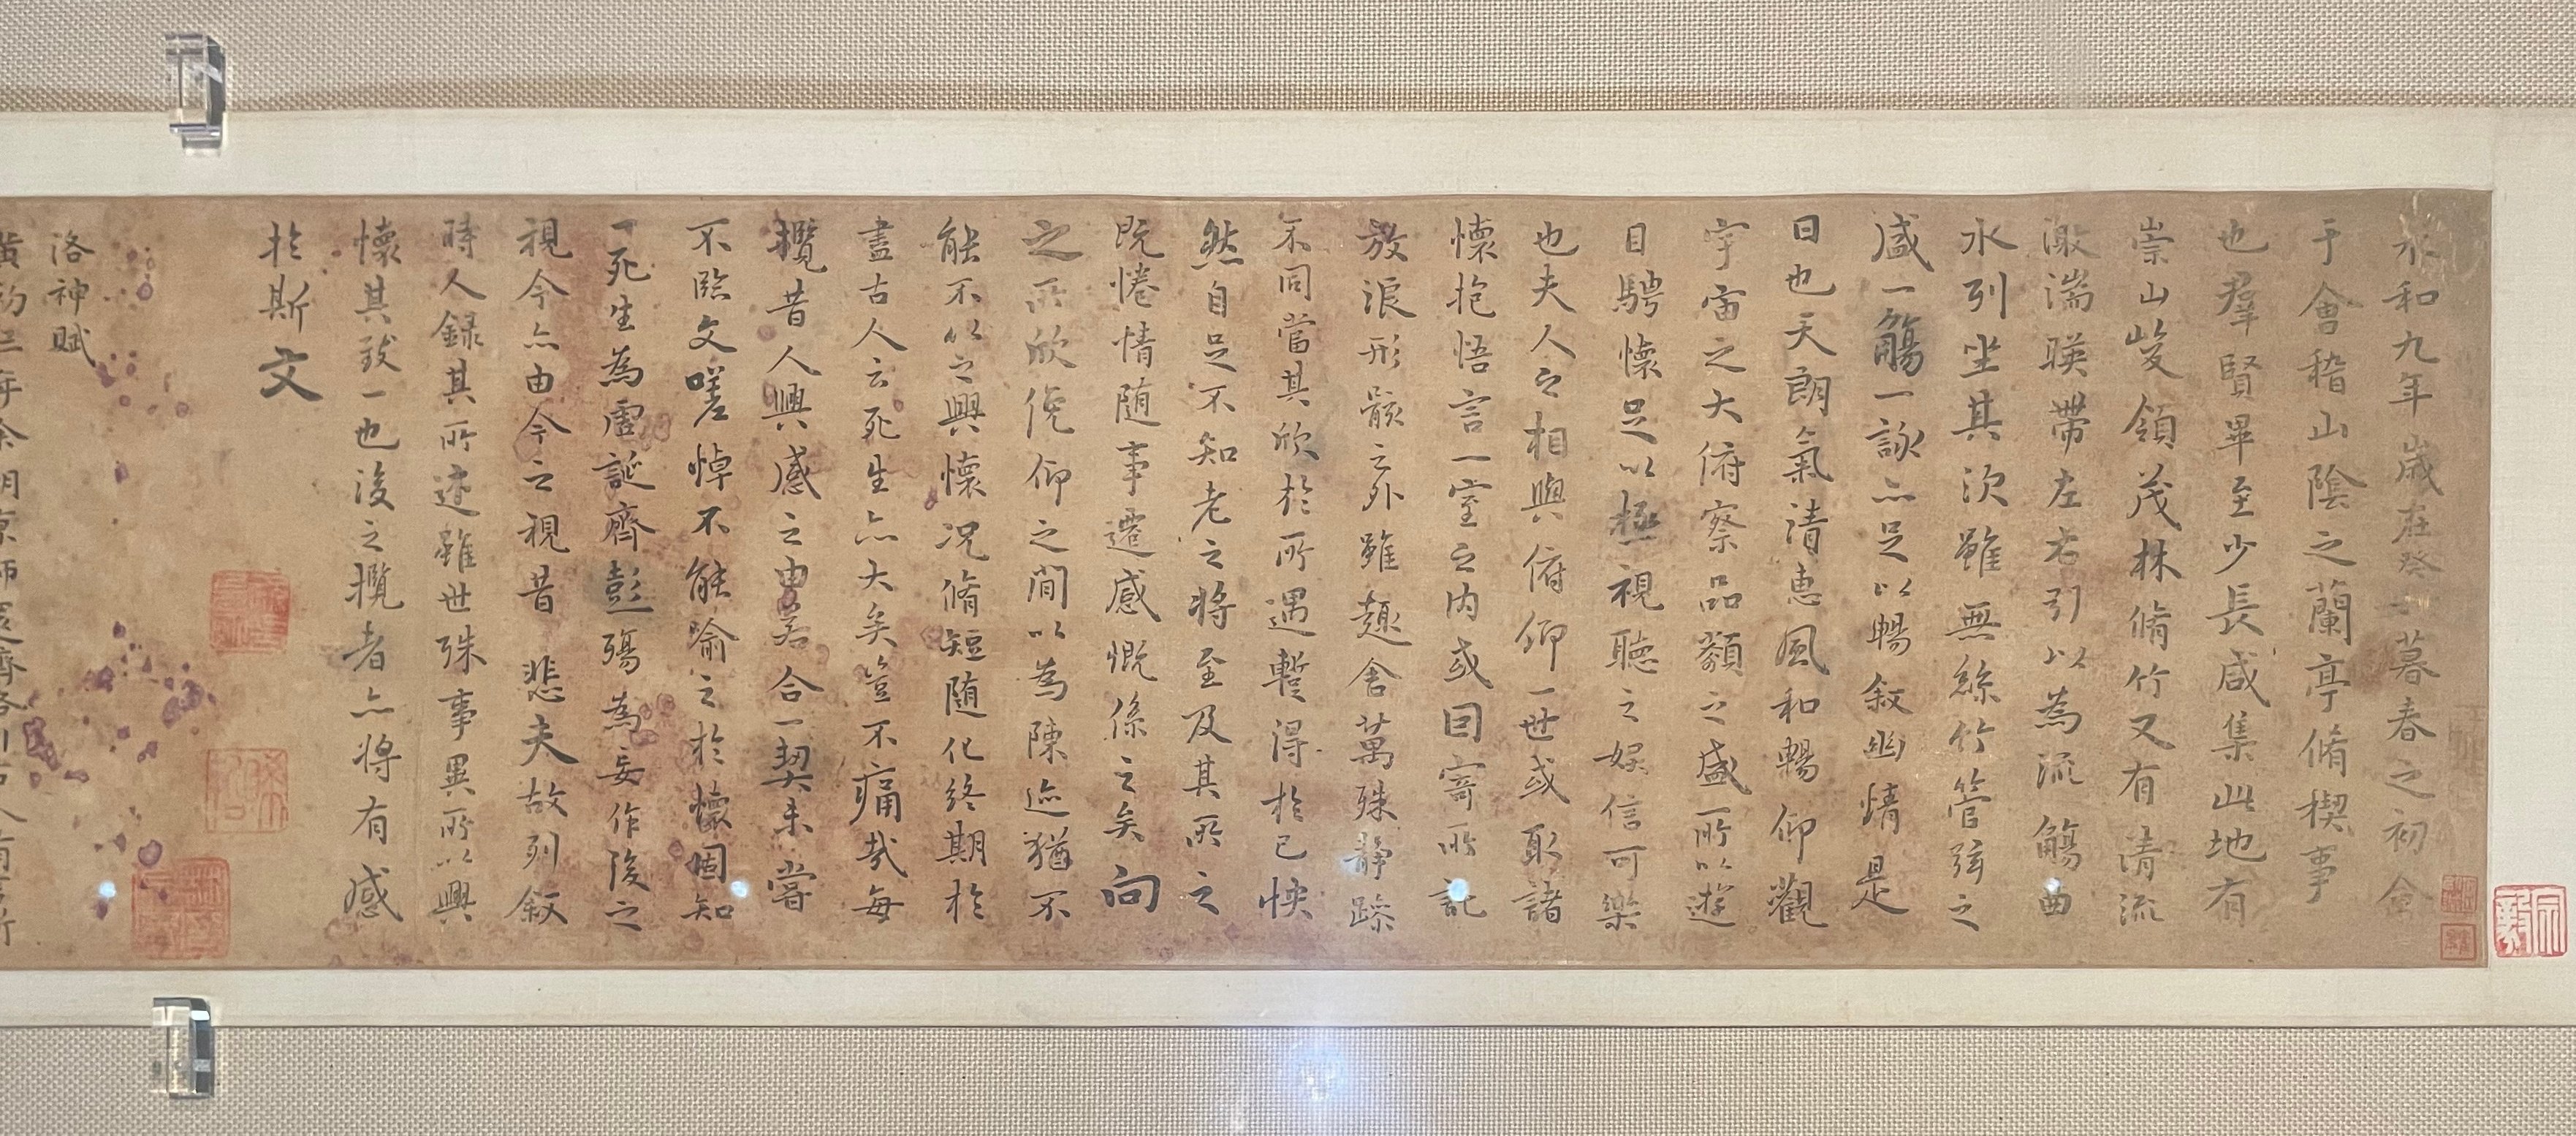 永和九年歲在癸暮春之初會
于會稽山陰之蘭亭脩稧事
也羣賢畢至少長咸集此地有
崇山峻領茂林脩竹又有清流
激湍暎帶左右引以為流觴曲
水列坐其次雖無絲竹管弦之
盛一觴一詠亦足以暢敘幽情是
日也天朗氣清惠風和暢仰觀
宇宙之大俯察品類之盛所以遊
目騁懷足以極視聽之娛信可樂
也夫人之相與俯仰一世或取諸
懷抱悟言一室之內或因寄所託
放浪形骸之外雖趣舍萬殊靜躁
不同當其欣於所遇暫得於己怏
然自足不知老之將至及其所之
既惓情随事遷感慨係之矣向
之所欣俛仰之間以為陳迹猶不
能不以之興懷況脩短随化終期於
盡古人云死生亦大矣豈不痛哉每
攬昔人興感之由若合一契未嘗
不臨文嗟悼不能喻之於懷固知
一死生為虛誕齊彭殤為妄作後之
視今亦由今之視昔悲夫故列敘
時人錄其所述雖世殊事異所以興
懷其致一也後之攬者亦將有感
於斯文
洛神賦
黃初三年余朝京師還濟洛川古人有言斯